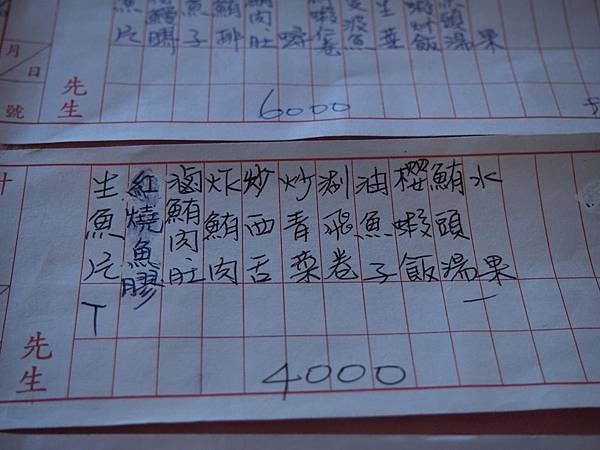 魚片
魚子
肉肚
炒飯
頭湯
果
月
日
號
先生
6000
生魚片
紅燒魚膠
滷鮪肉肚
炸鮪肉
炒西舌
炒青菜
飛卷
油魚子
櫻蝦飯
鮪頭湯
水果
T
一
先生
4000